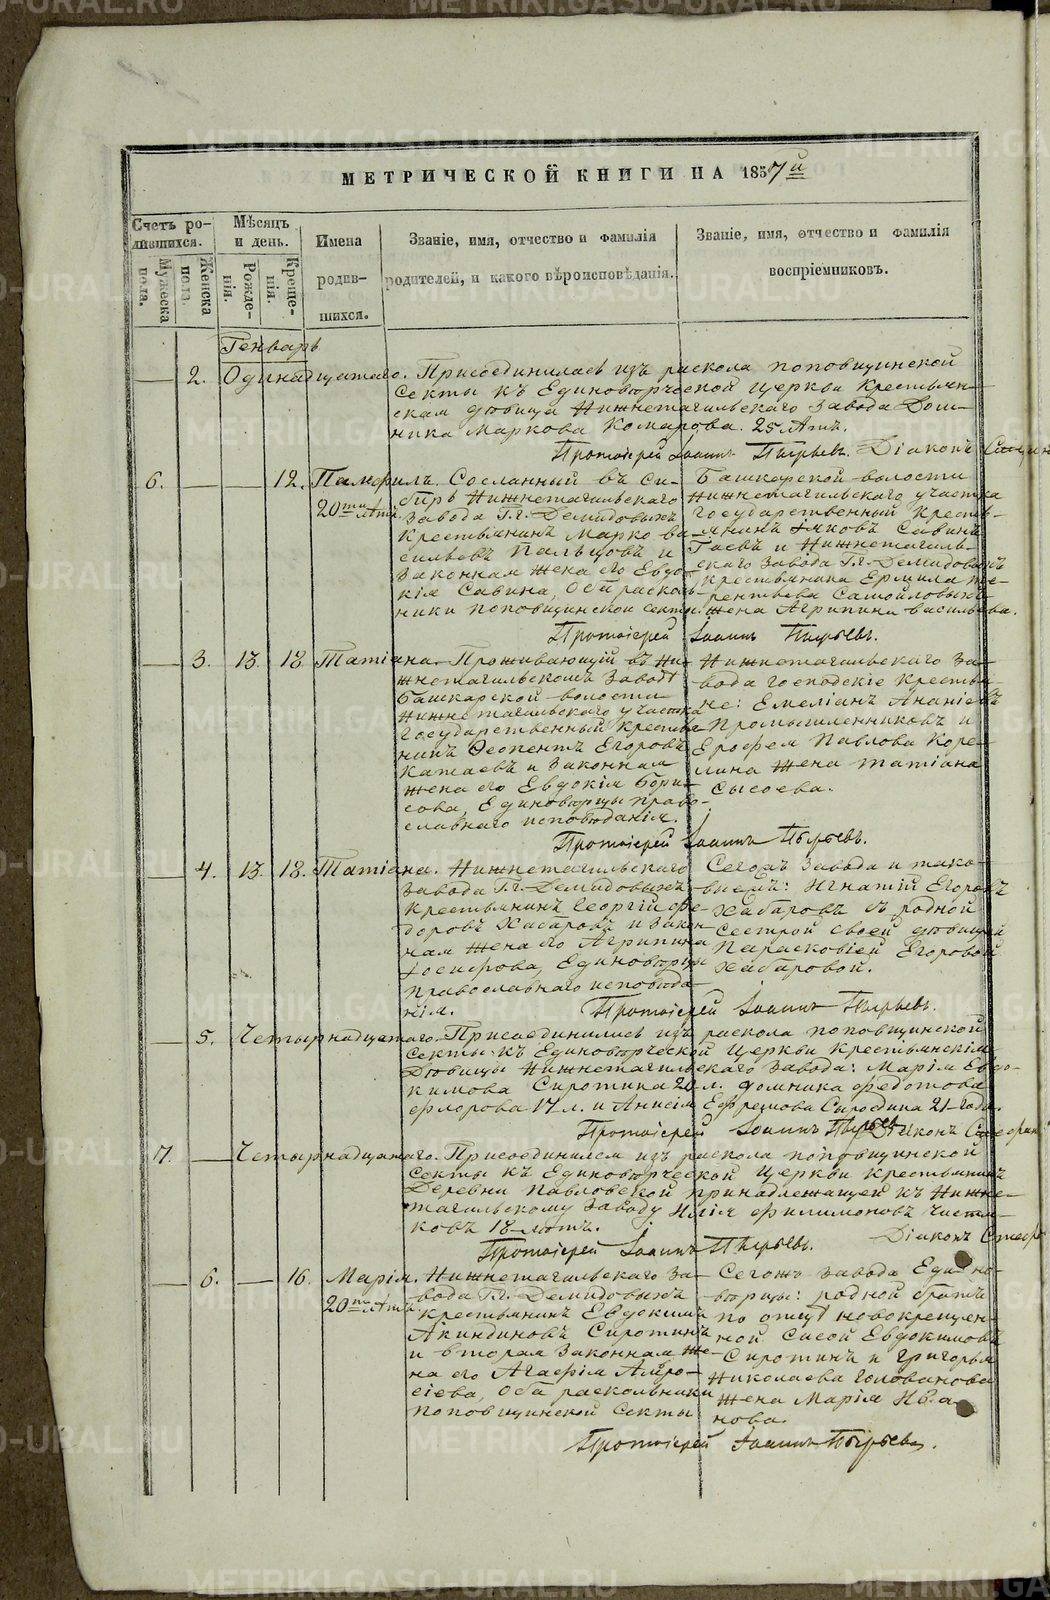 МЕТРИЧЕСКОЙ КНИГИ НА 1857й
Счетъ родившихся.
Мѣсяцъ и день.
Имена родившихся.
Званіе, имя, отчество и фамилія родителей, и какого вѣроисповѣданія.
Званіе, имя, отчество и фамилія воспріемниковъ.
Мужеска пола.
Женска пола.
Рожденія.
Крещенія.
Генварь
— 2. Одинадцатаго. Присоединилась изъ раскола поповщинской
секты къ Единовѣрческой церкви крестьян-
ская дѣвица Нижнетагильскаго завода Дом-
ника Маркова Комарова. 25 лѣтъ.
Протоіерей Іоаннъ Пырьевъ. Діаконъ
6. — — 12. Памфилъ.
20ти лѣтъ.
Сосланный въ Си-
бирь Нижнетагильскаго
завода Г.г. Демидовыхъ
крестьянинъ Марко Ва-
сильевъ Пальцовъ и
законная жена его Евдо-
кія Савина, оба расколь-
ники поповщинской секты.
Башкарской волости
Нижнетагильскаго участка
государственный кресть-
янинъ Іяковъ Савинъ
Гаевъ и Нижнетагиль-
скаго завода Г.г. Демидовыхъ
крестьянина Ермила Те-
рентьева Самойловыхъ
жена Агрипина Васильева.
Протоіерей Іоаннъ Пырьевъ.
— 3. 13. 18. Татіана.
Проживающій въ Ни-
жнетагильскомъ заводѣ
Башкарской волости
Нижнетагильскаго участка
государственный крестья-
нинъ Ѳеопентъ Егоровъ
Катаевъ и законная
жена его Евдокія Бори-
сова, Единовѣрцы право-
славнаго исповѣданія.
Нижнетагильскаго за-
вода господскіе крестья-
не: Емеліанъ Ананіевъ
Промышленниковъ и
Ерофея Павлова Коре-
лина жена Татіана
Сысоева.
Протоіерей Іоаннъ Пырьевъ.
— 4. 13. 18. Татіана.
Нижнетагильскаго
завода Г.г. Демидовыхъ
крестьянинъ Георгій Ѳе-
доровъ Хабаровъ и закон-
ная жена его Агрипина
Іосифова, Единовѣрцы
православнаго исповѣда-
нія.
Сегожъ завода и тако-
выежъ: Игнатій Егоровъ
Хабаровъ съ родной
сестрой своей дѣвицей
Параскевіей Егоровой
Хабаровой.
Протоіерей Іоаннъ Пырьевъ.
— 5. Четырнадцатаго. Присоединились изъ раскола поповщинской
секты къ Единовѣрческой церкви крестьянскія
дѣвицы Нижнетагильскаго завода: Марія Евдо-
кимова Сиротина 20 л. Домника Федотова
Флорова 17 л. и Анисія Ефремова Сиротина 21 года.
Протоіерей Іоаннъ Пырьевъ. Діаконъ
7. — Четырнадцатаго. Присоединился изъ раскола поповщинской
секты къ Единовѣрческой церкви крестьянинъ
деревни Павловской принадлежащей къ Нижне-
тагильскому заводу Илія Филимоновъ Чистя-
ковъ 18 лѣтъ.
Протоіерей Іоаннъ Пырьевъ. Діаконъ
— 6. — 16. Марія.
20ти лѣтъ
Нижнетагильскаго за-
вода Г.г. Демидовыхъ
крестьянинъ Евдокимъ
Акиндиновъ Сиротинъ
и вторая законная же-
на его Агафія Амвро-
сіева, оба раскольники
поповщинской секты
Сегожъ завода Едино-
вѣрцы: родной братъ
по отцу новокрещен-
ной Сисой Евдокимовъ
Сиротинъ и Григорья
Николаева Голованова
жена Марія Ива-
нова.
Протоіерей Іоаннъ Пырьевъ.
METRIKI.GASO-URAL.RU